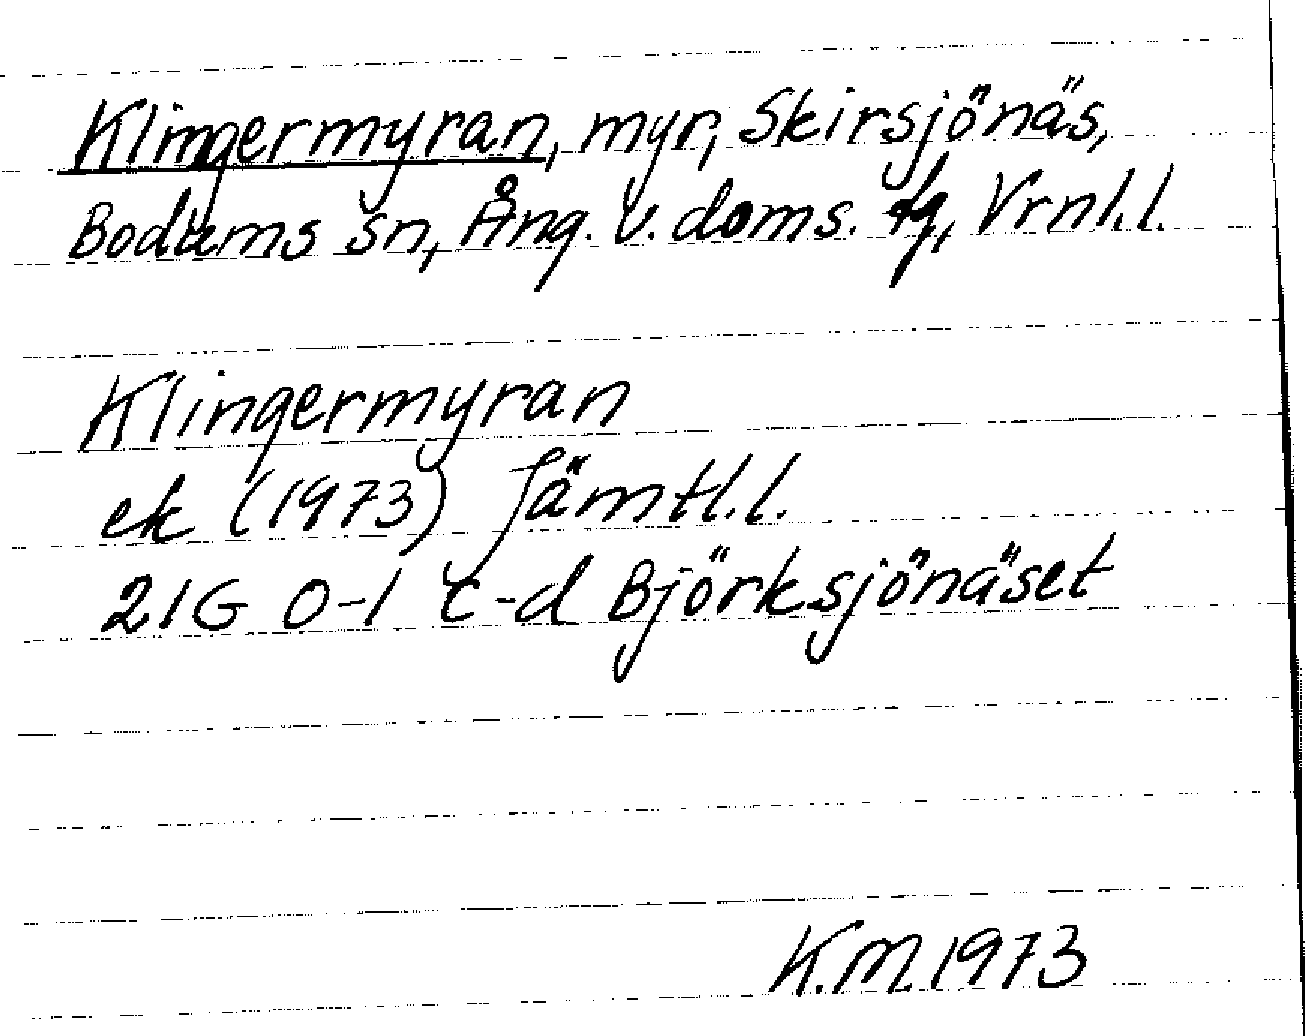 Klingermyran, myr, Skirsjönäs,
Bodums sn, Ång. v. doms. fg, Vrnl.l.
Klingermyran
ek (1973) Jämtl.l.
21G 0-1 c-d Björksjönäset
K.M. 1973